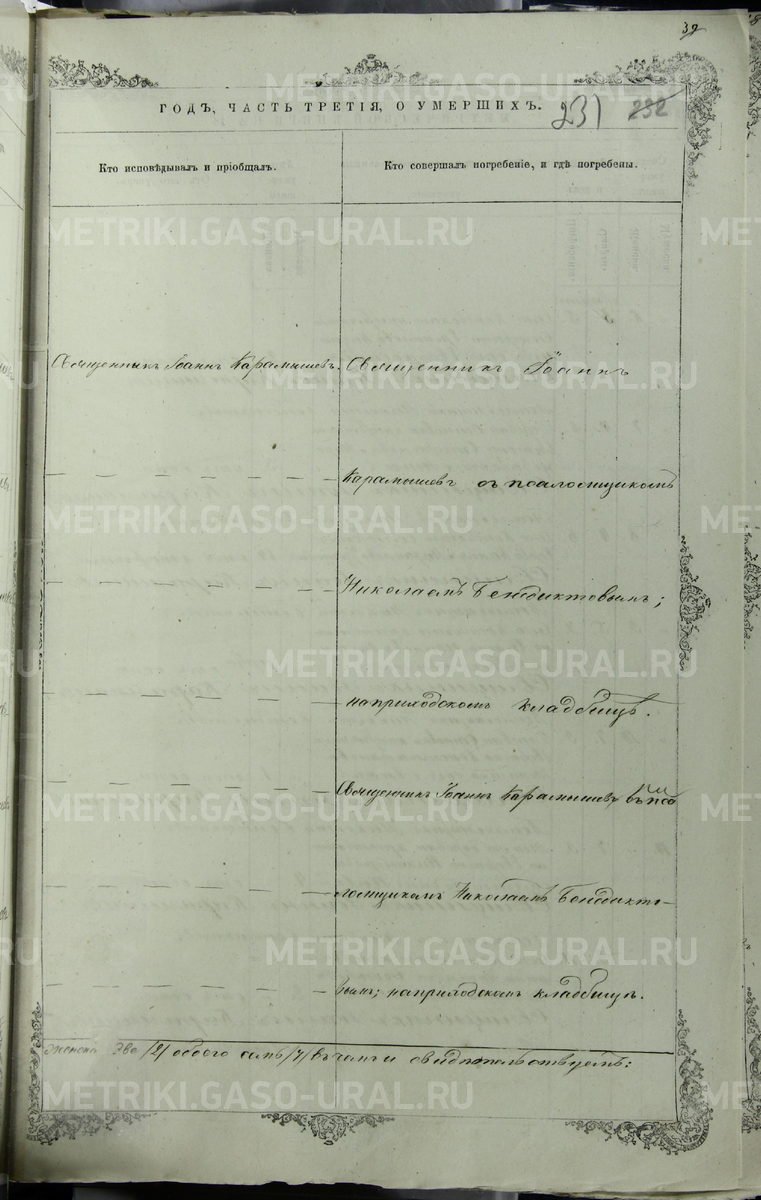 39
ГОДЪ, ЧАСТЬ ТРЕТІЯ, О УМЕРШИХЪ. 231 232
Кто исповѣдывалъ и пріобщалъ.
Кто совершалъ погребеніе, и гдѣ погребены.
Священникъ Іоаннъ Карамышевъ.
Священникъ Іоаннъ
Карамышевъ съ псаломщикомъ
Николаемъ Бенедиктовымъ;
на приходскомъ кладбищѣ.
Священникъ Іоаннъ Карамышевъ съ пса
ломщикомъ Николаемъ Бенедикто-
вымъ; на приходскомъ кладбищѣ.
женска два /2/ обоего семь /7/ въ чемъ и свидѣтельствуемъ:
METRIKI.GASO-URAL.RU